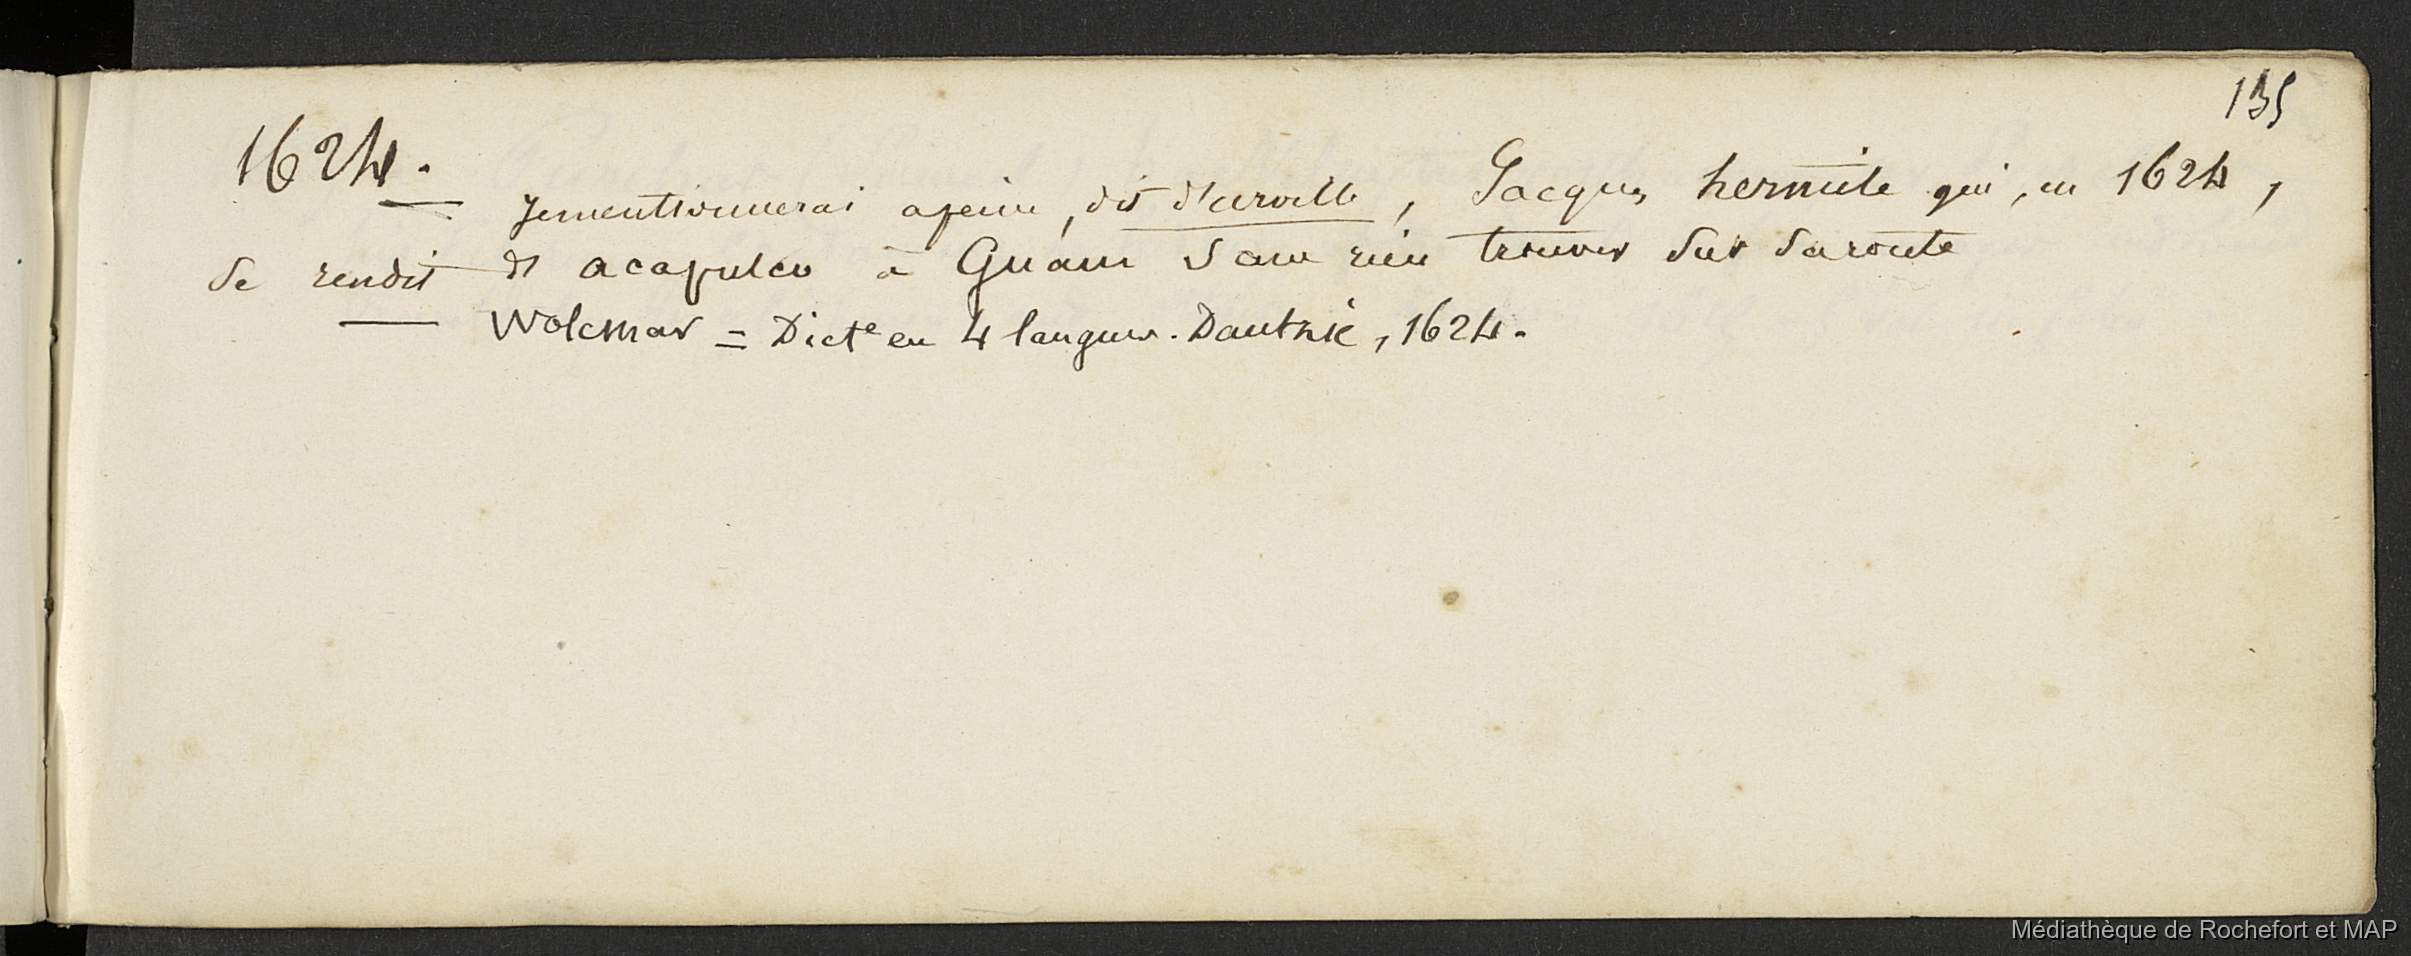 135
1624.
— je mentionnerai apeine, dit d'urville, Jacques hermite qui, en 1624,
se rendit d' acapulco à Guam sans rien trouver sur sa route
— Wolcmar = Dict.e en 4 langues. Dantzic, 1624.
Médiathèque de Rochefort et MAP